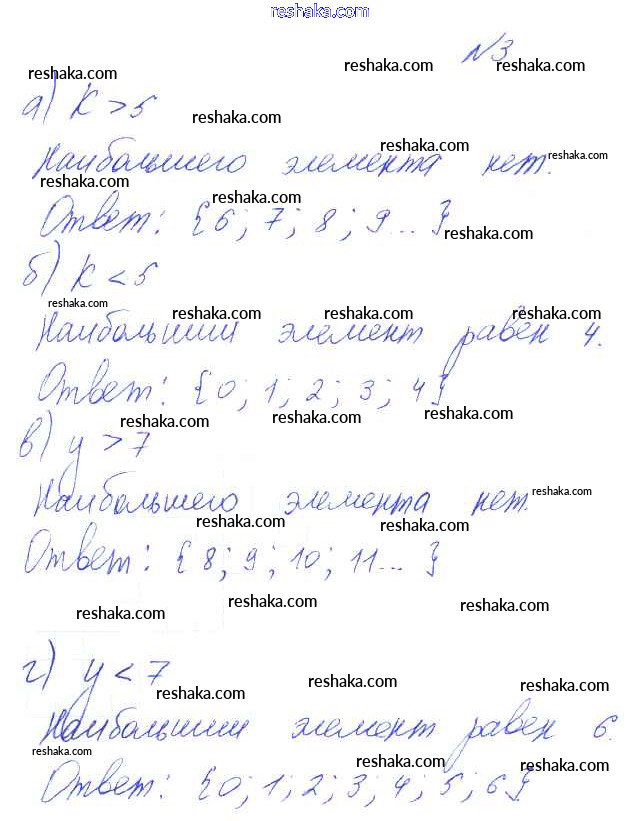 reshaka.com
№3
reshaka.com reshaka.com reshaka.com
а) k > 5 reshaka.com
reshaka.com reshaka.com
Наибольшего элемента нет.
reshaka.com reshaka.com
Ответ: {6; 7; 8; 9... }
reshaka.com
б) k < 5
reshaka.com reshaka.com reshaka.com reshaka.com
Наибольший элемент равен 4.
Ответ: {0; 1; 2; 3; 4}
reshaka.com reshaka.com reshaka.com
в) y > 7
reshaka.com
Наибольшего элемента нет.
reshaka.com reshaka.com
Ответ: {8; 9; 10; 11... }
reshaka.com reshaka.com reshaka.com
г) y < 7
reshaka.com reshaka.com reshaka.com
Наибольший элемент равен 6.
reshaka.com reshaka.com reshaka.com
Ответ: {0; 1; 2; 3; 4; 5; 6}